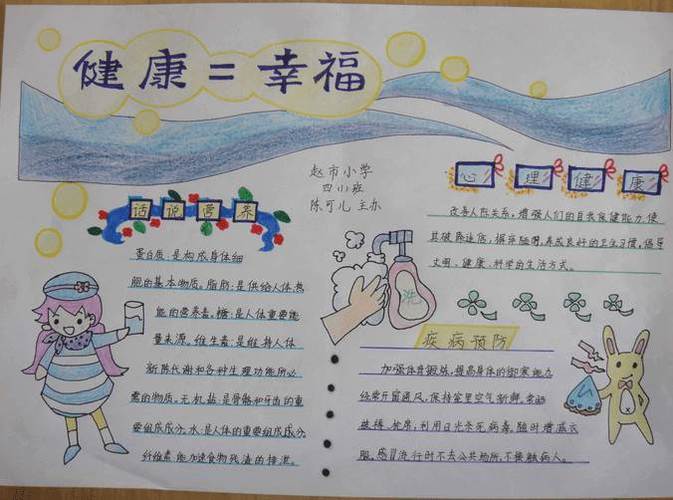 健康=幸福
赵市小学
四(1)班
陈可儿 主办
话说营养
蛋白质:是构成身体细
胞的基本物质。脂肪:是供给人体热
能的营养素。糖:是人体重要能
量来源。维生素:是维持人体
新陈代谢和各种生理功能所必
需的物质。无机盐:是骨骼和牙齿的重
要组成成分。水:是人体的重要组成成分。
纤维素:能加速食物残渣的排泄。
心理健康
改善人际关系,增强人们的自我保健能力,使
其破除迷信,摒弃陋习,养成良好的卫生习惯,倡导
文明、健康、科学的生活方式。
洗
疾病预防
加强体育锻炼,提高身体的御寒能力
经常开窗通风,保持室里空气新鲜。常晒
被褥、枕席;利用日光杀死病毒,随时增减衣
服。感冒流行时不去公共场所,不接触病人。